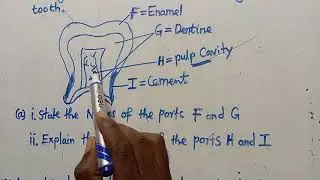 tooth.
F = Enamel
G = Dentine
H = pulp Cavity
I = Cement
(a) i. State the Names of the parts F and G
ii. Explain the of the parts H and I